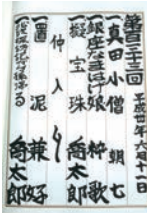 第百二十三回
平成廿年六月十一日
一真田小僧 朝七
一銀座なまはげ娘 粋歌
一擬宝珠 喬太郎
仲入り
一置泥 兼好
一 喬太郎